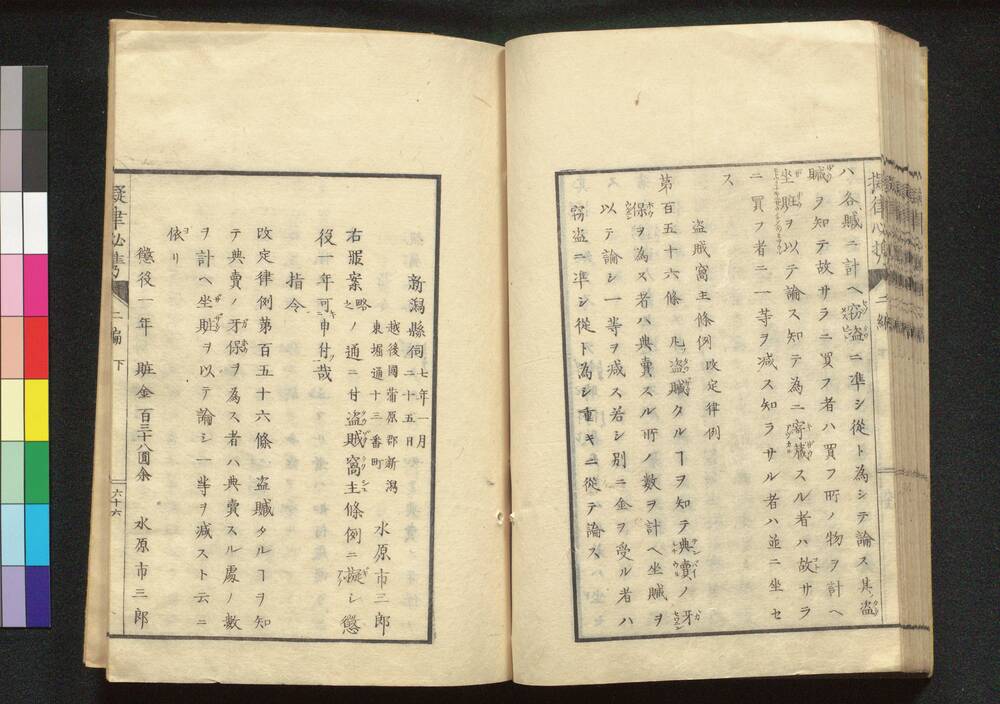 ハ各贓ニ計ヘ窃盗ニ準シ從ト為シテ論ス其盗
贓ヲ知テ故サラニ買フ者ハ買フ所ノ物ヲ計ヘ
坐贓ヲ以テ論ス知テ為ニ寄藏スル者ハ故サラ
ニ買フ者ニ一等ヲ减ス知ラサル者ハ並ニ坐セ
ス
盗賊窩主條例 改定律例
第百五十六條 凡盗贓タルヿヲ知テ典賣ノ牙
保ヲ為ス者ハ典賣スル所ノ数ヲ計ヘ坐贓ヲ
以テ論シ一等ヲ减ス若シ別ニ金ヲ受ル者ハ
窃盗ニ準シ從ト為シ重キニ從テ論ス
新潟縣伺 七年一月二十五日
越後國蒲原郡新潟東堀通十三番町 水原市三郎
右罪案略之ノ通ニ付盗賊窩主條例ニ擬シ懲
役一年可申付哉
指令
改定律例第百五十六條ニ盗贓タルヿヲ知
テ典賣ノ牙保ヲ為ス者ハ典賣スル處ノ數
ヲ計ヘ坐贓ヲ以テ論シ一等ヲ减スト云ニ
依リ
懲役一年 贓金百三十八圓余 水原市三郎
二編 下
六十六